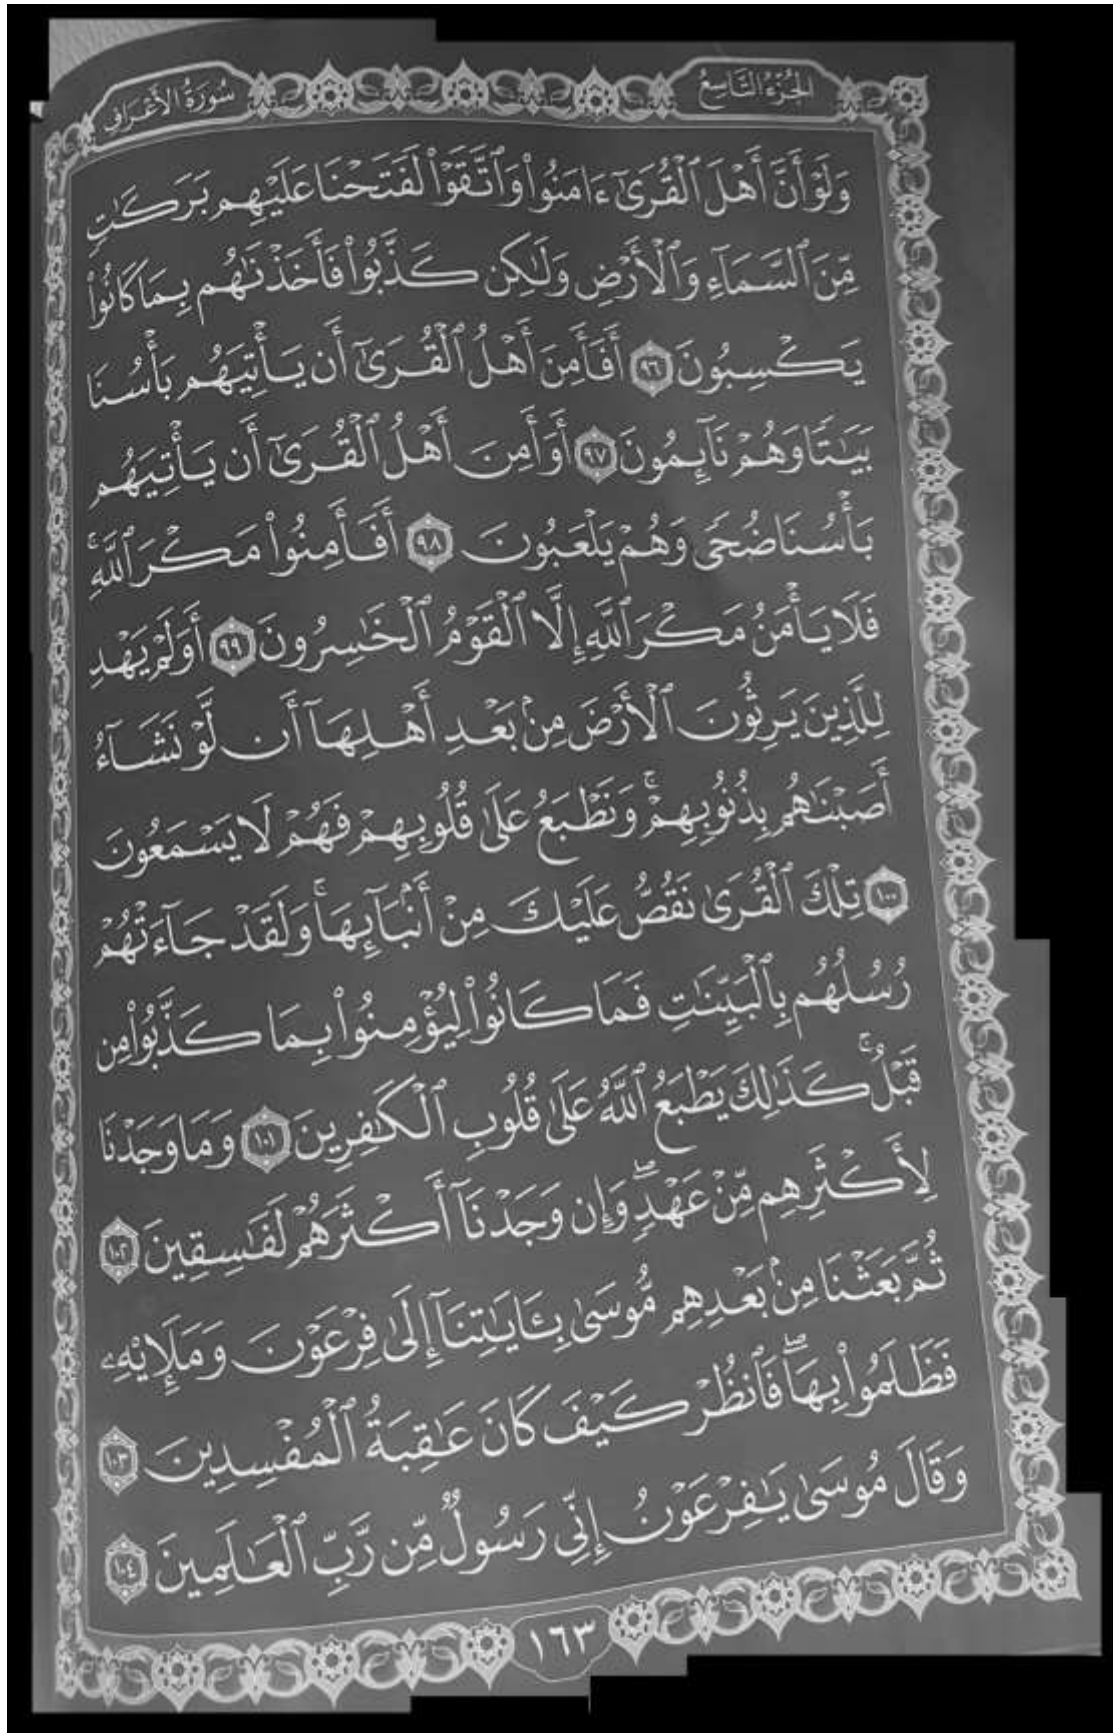 الجُزْءُ التَّاسِعُ
سُورَةُ الأَعْرَافِ
وَلَوْ أَنَّ أَهْلَ ٱلْقُرَىٰٓ ءَامَنُوا۟ وَٱتَّقَوْا۟ لَفَتَحْنَا عَلَيْهِم بَرَكَٰتٍ
مِّنَ ٱلسَّمَآءِ وَٱلْأَرْضِ وَلَٰكِن كَذَّبُوا۟ فَأَخَذْنَٰهُم بِمَا كَانُوا۟
يَكْسِبُونَ ٩٦ أَفَأَمِنَ أَهْلُ ٱلْقُرَىٰٓ أَن يَأْتِيَهُم بَأْسُنَا
بَيَٰتًا وَهُمْ نَآئِمُونَ ٩٧ أَوَأَمِنَ أَهْلُ ٱلْقُرَىٰٓ أَن يَأْتِيَهُم
بَأْسُنَا ضُحًى وَهُمْ يَلْعَبُونَ ٩٨ أَفَأَمِنُوا۟ مَكْرَ ٱللَّهِۚ
فَلَا يَأْمَنُ مَكْرَ ٱللَّهِ إِلَّا ٱلْقَوْمُ ٱلْخَٰسِرُونَ ٩٩ أَوَلَمْ يَهْدِ
لِلَّذِينَ يَرِثُونَ ٱلْأَرْضَ مِنۢ بَعْدِ أَهْلِهَآ أَن لَّوْ نَشَآءُ
أَصَبْنَٰهُم بِذُنُوبِهِمْۚ وَنَطْبَعُ عَلَىٰ قُلُوبِهِمْ فَهُمْ لَا يَسْمَعُونَ
١٠٠ تِلْكَ ٱلْقُرَىٰ نَقُصُّ عَلَيْكَ مِنْ أَنۢبَآئِهَاۚ وَلَقَدْ جَآءَتْهُمْ
رُسُلُهُم بِٱلْبَيِّنَٰتِ فَمَا كَانُوا۟ لِيُؤْمِنُوا۟ بِمَا كَذَّبُوا۟ مِن
قَبْلُۚ كَذَٰلِكَ يَطْبَعُ ٱللَّهُ عَلَىٰ قُلُوبِ ٱلْكَٰفِرِينَ ١٠١ وَمَا وَجَدْنَا
لِأَكْثَرِهِم مِّنْ عَهْدٍۖ وَإِن وَجَدْنَآ أَكْثَرَهُمْ لَفَٰسِقِينَ ١٠٢
ثُمَّ بَعَثْنَا مِنۢ بَعْدِهِم مُّوسَىٰ بِـَٔايَٰتِنَآ إِلَىٰ فِرْعَوْنَ وَمَلَإِي۟هِۦ
فَظَلَمُوا۟ بِهَاۖ فَٱنظُرْ كَيْفَ كَانَ عَٰقِبَةُ ٱلْمُفْسِدِينَ ١٠٣
وَقَالَ مُوسَىٰ يَٰفِرْعَوْنُ إِنِّى رَسُولٌ مِّن رَّبِّ ٱلْعَٰلَمِينَ ١٠٤
١٦٣